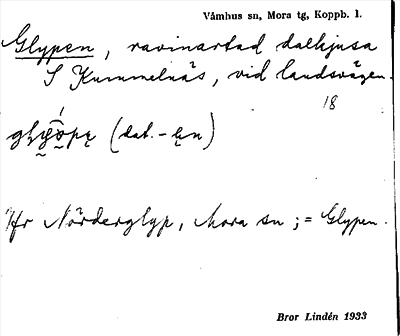 Våmhus sn, Mora tg, Koppb. l.
Glypen, ravinartad dalhjusa
S Kummelnäs, vid landsvägen.
18
(dat. -ęn)
Jfr Nörderglyp, Mora sn ; = Glypen.
Bror Lindén 1933